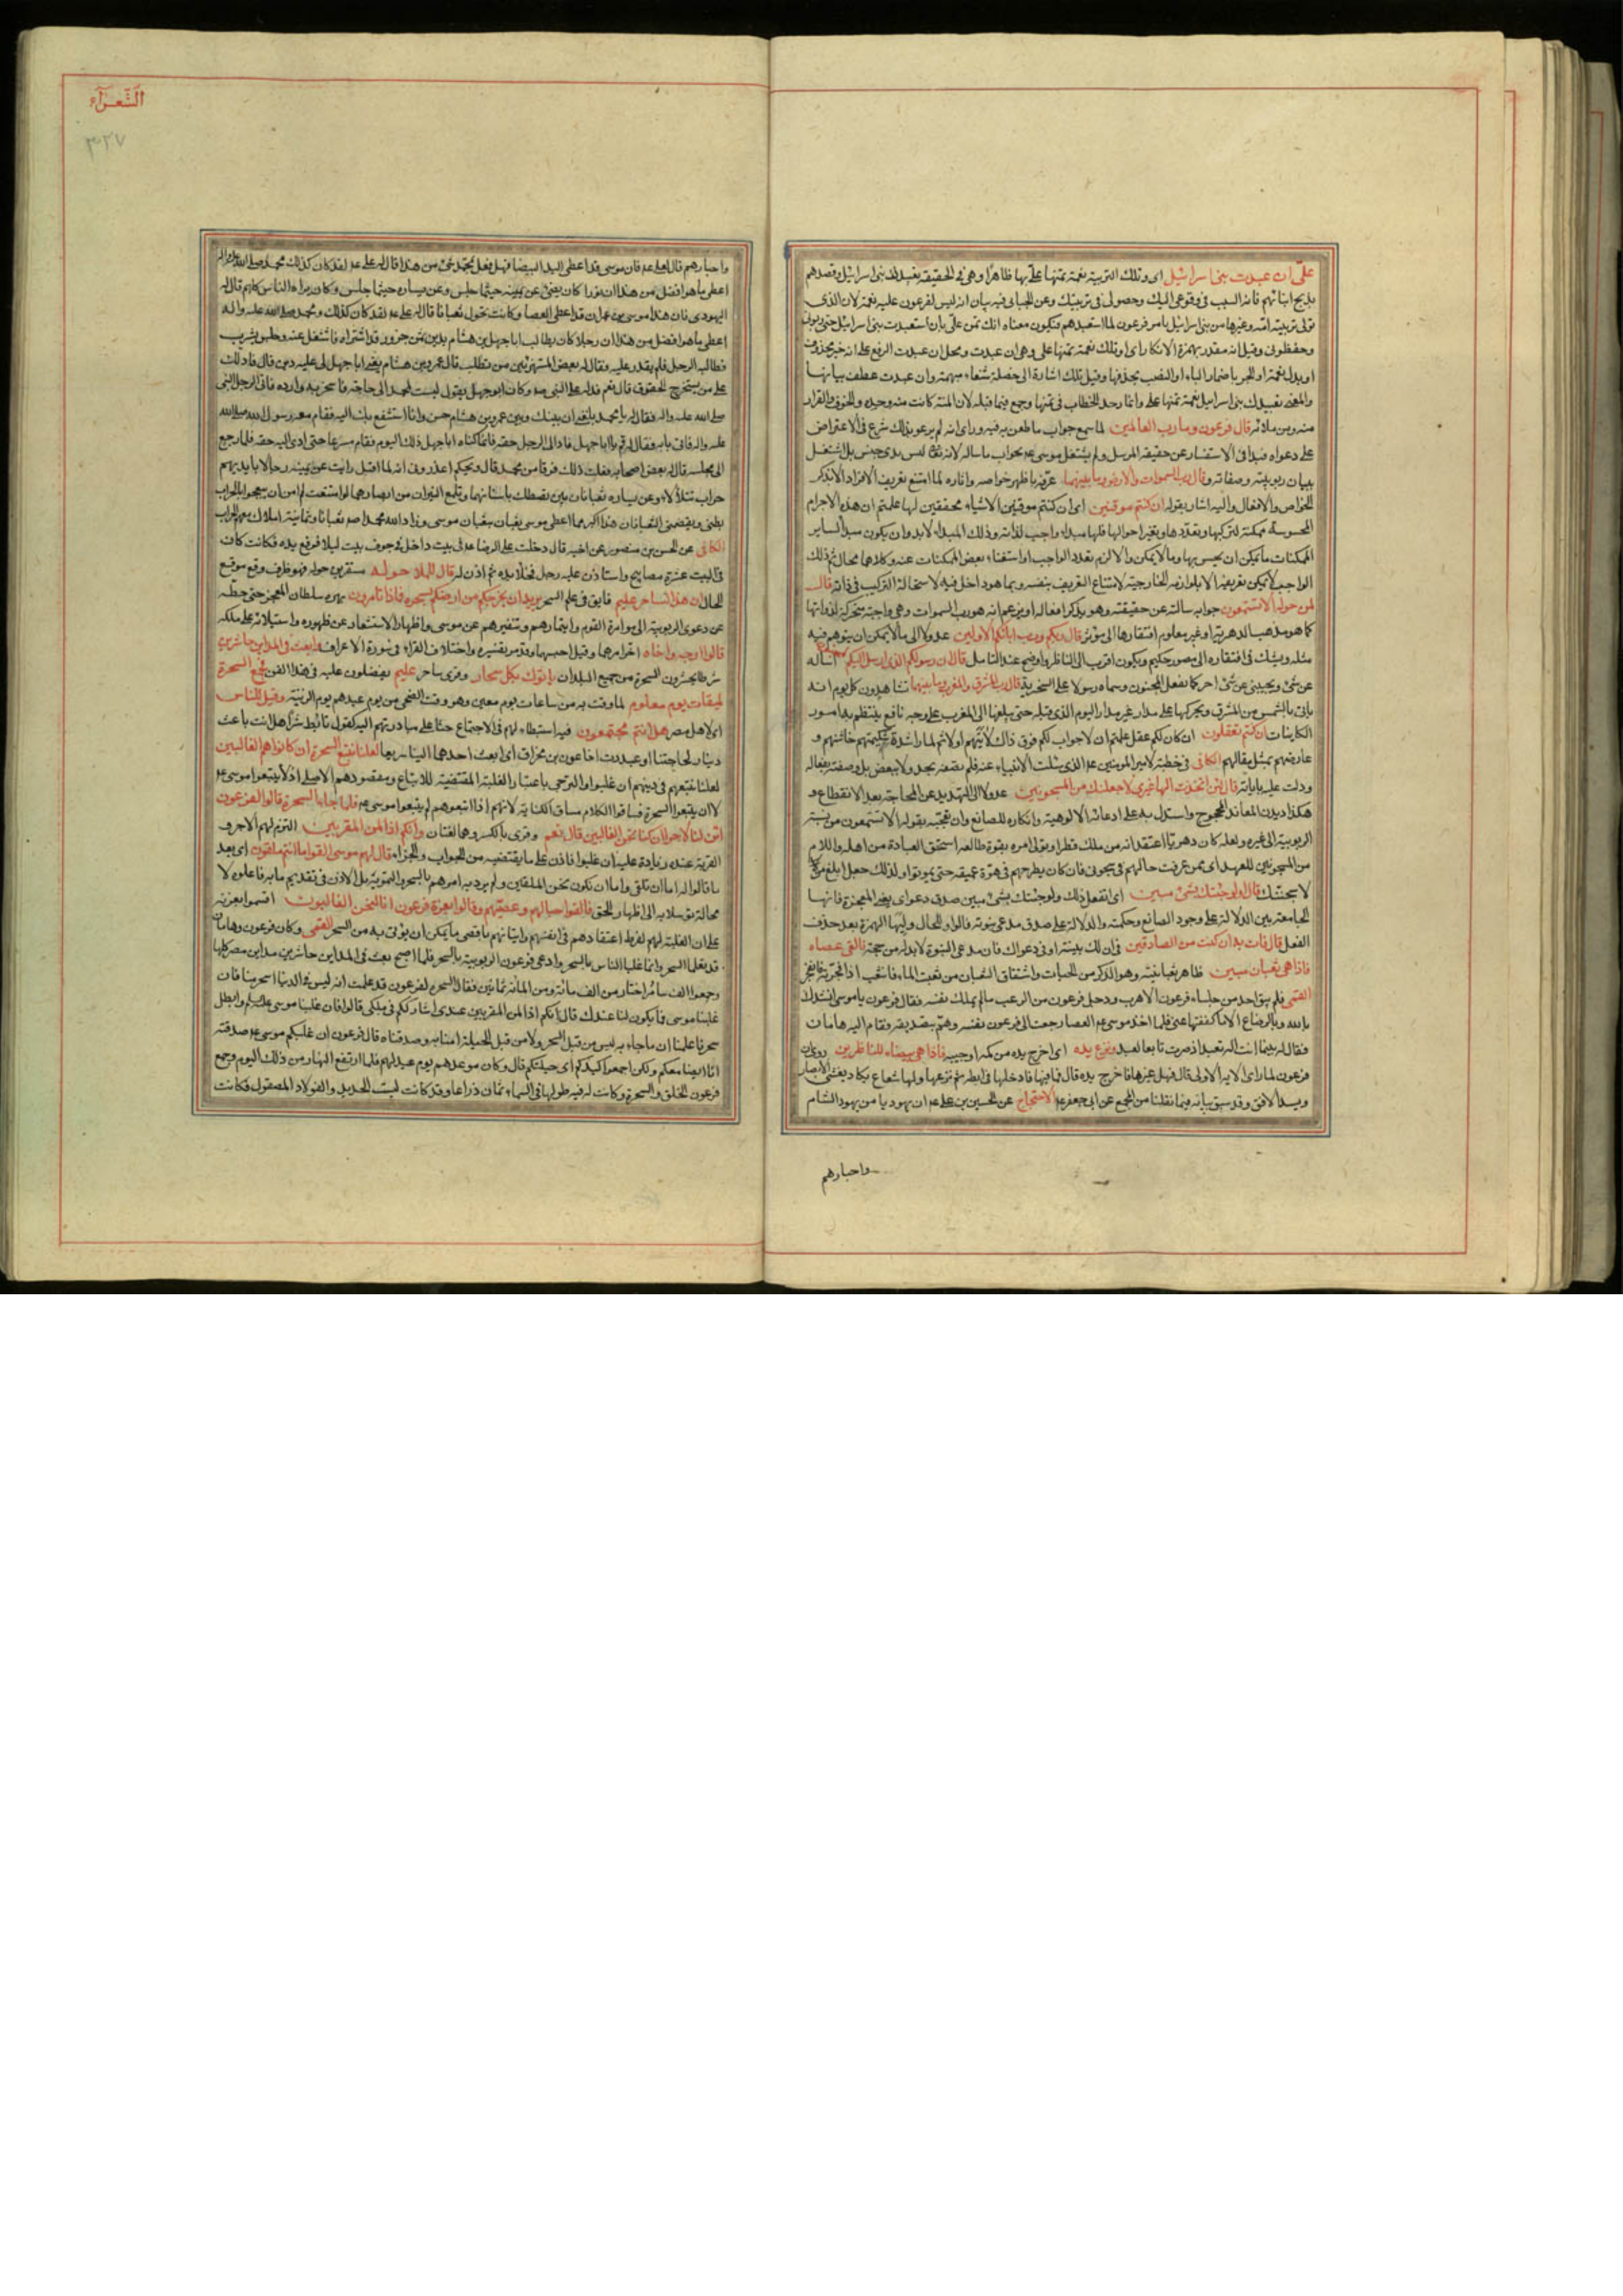 علىّ ان عبدت بنى اسرائيل اى وتلك التربية نعمة تمنها علىّ بها ظاهرا وهى فى الحقيقة تعبيدك بنى اسرائيل وقصدهم
بذبح ابنائهم فانه السبب فى وقوعى اليك وحصولى فى تربيتك وعن الجبائى فيه بيان انه ليس لفرعون عليه نعمة لان الذى
تولى تربيته امه وغيرها من بنى اسرائيل بامر فرعون لما استعبدهم فيكون معناه انك تمن علىّ بان استعبدت بنى اسرائيل حتى
وحفظونى وقيل انه مقدر بهمزة الانكار اى اوتلك نعمة تمنها على وهى ان عبدت ومحل ان عبدت الرفع على انه خبر محذوف
او بدل نعمة او الجر باضمار الباء او النصب بحذفها وقيل تلك اشارة الى خصلة شنعاء مبهمة وان عبدت عطف بيانها
والمعنى تعبيدك بنى اسرائيل نعمة تمنها على وانما وحد الخطاب فى تمنها وجمع فيما قبله لان المنة كانت منه وحده والخوف والفرار
منه ومن ملائه قال فرعون وما رب العالمين لما سمع جواب ما طعن به فيه وراى انه لم يرعو بذلك شرع فى الاعتراض
على دعواه فبدا فى الاستفسار عن حقيقة المرسل ولم يشتغل موسى عم بجواب ما ساله لانه تع ليس بذى جنس بل اشتغل
ببيان ربوبيته وصفاته وقال رب السموات والارض وما بينهما عرّفه باظهر خواصه واثاره لما امتنع تعريف الافراد الا بذكر
الخواص والافعال واليه اشار بقوله ان كنتم موقنين اى ان كنتم موقنين الاشياء محققين لها علمتم ان هذه الاجرام
المحسوسة ممكنة لتركبها وتعددها وتغير احوالها فلها مبداء واجب لذاته وذلك المبداء لابد وان يكون مبدا لساير
الممكنات ما يمكن ان يحس بها وما لا يمكن والا لزم تعدد الواجب او استغناء بعض الممكنات عنه وكلاهما محال ثم ذلك
الواجب لا يمكن تعريفه الا بلوازمه الخارجية لامتناع التعريف بنفسه وبما هو داخل فيه لاستحالة التركيب فى ذاته قال
لمن حوله الا تستمعون جوابه سالته عن حقيقته وهو يذكر افعاله او يزعم انه هو رب السموات وهى واجبة متحركة لذواتها
كما هو مذهب الدهرية او غير معلوم افتقارها الى مؤثر قال ربكم ورب ابائكم الاولين عدولا الى ما لا يمكن ان يتوهم فيه
مثله ويشك فى افتقاره الى مصور حكيم ويكون اقرب الى الناظر واوضح عند التامل قال ان رسولكم الذى ارسل اليكم لمجنون اساله
عن شئ ويجيبنى عن شئ اخر كما يفعل المجنون وسماه رسولا على السخرية قال رب المشرق والمغرب وما بينهما تشاهدون كل يوم انه
ياتى بالشمس من المشرق ويحركها على مدار غير مدار اليوم الذى قبله حتى يبلغها الى المغرب على وجه نافع ينتظم به امور
الكاينات ان كنتم تعقلون ان كان لكم عقل علمتم ان لا جواب لكم فوق ذاك لاينهم اولا ثم لما راى شدة شكيمتهم خاشنهم و
عارضهم بمثل مقالهم الكافى فى خطبة لامير المومنين عم الذى سئلت الانبياء عنه فلم تصفه بحد ولا ببعض بل وصفته بفعاله
ودلت عليه باياته قال لئن اتخذت الها غيرى لاجعلنك من المسجونين عدولا الى التهديد عن المحاجة بعد الانقطاع و
هكذا ديدن المعاند المحجوج واستدل به على ادعائه الالوهية وانكاره للصانع وان تعجبه بقوله الا تستمعون من نسبة
الربوبية الى غيره ولعله كان دهريا اعتقد انه من ملك قطرا وتولى امره بقوة طالعه استحق العبادة من اهله واللام
من المسجونين للعهد اى ممن عرفت حالهم فى سجونى فان كان يطرحهم فى هوة عميقة حتى يموتوا ولذلك جعل ابلغ من
لاسجننك قال اولو جئتك بشئ مبين اى اتفعل ذلك ولو جئتك بشئ مبين صدق دعواى يعنى المعجزة فانها
الجامعة بين الدلالة على وجود الصانع وحكمته والدلالة على صدق مدعى نبوته فالواو للحال وليها الهمزة بعد حذف
الفعل قال فات به ان كنت من الصادقين فى ان لك بينة او فى دعواك فان مدعى النبوة لا بد له من حجة فالقى عصاه
فاذا هى ثعبان مبين ظاهر ثعبانيته وهو الذكر من الحيات واشتقاق الثعبان من ثعبت الماء فانثعب اذا فجرته فانفجر
القمى فلم يبق احد من جلساء فرعون الا هرب ودخل فرعون من الرعب ما لم يملك نفسه فقال فرعون يا موسى انشدك
بالله وبالرضاع الا ما كففتها عنى فلما اخذ موسى عم العصا رجعت الى فرعون نفسه وهمّ بتصديقه فقام اليه هامان
فقال له بينما انت اله تعبد اذ صرت تابعا لعبد ونزع يده اى اخرج يده من كمه او جيبه فاذا هى بيضاء للناظرين روى ان
فرعون لما راى الاية الاولى قال فهل غيرها فاخرج يده قال فما فيها فادخلها فى ابطه ثم نزعها ولها شعاع يكاد يغشى الابصار
ويسد الافق وقد سبق بيانه فيما نقلنا من المجمع عن ابى جعفر عم الاحتجاج عن الحسين بن على عم ان يهوديا من يهود الشام
واحبارهم
الشعرآء
٣٠٢٧
واحبارهم قال لعلى عم فان موسى قد اعطى اليد البيضا فهل فعل بمحمد شئ من هذا قال له على عم لقد كان كذلك ومحمد صلى الله عليه واله
اعطى ما هو افضل من هذا ان نورا كان يضئ عن يمينه حيثما جلس وعن يساره حيثما جلس وكان يراه الناس كلهم قال له
اليهودى فان هذا موسى بن عمران قد اعطى العصا وكانت تحول ثعبانا قال له على عم لقد كان كذلك ومحمد صلى الله عليه واله
اعطى ما هو افضل من هذا ان رجلا كان يطالب ابا جهل بن هشام بدين ثمن جزور قد اشتراه فاشتغل عنه وجلس يشرب
فطالبه الرجل فلم يقدر عليه فقال له بعض المستهزئين من تطلب قال عمرو بن هشام يعنى ابا جهل لى عليه دين قال فادلك
على من يستخرج الحقوق قال نعم فدله على النبى صم وكان ابو جهل يقول ليت لمحمد الى حاجة فاسخر به وارده فاتى الرجل النبى
صلى الله عليه واله فقال له يا محمد بلغنى ان بينك وبين عمرو بن هشام حسن وانا استشفع بك اليه فقام معه رسول الله صلى الله
عليه واله فاتى بابه فقال له قم يا ابا جهل فاد الى الرجل حقه فانما كناه ابا جهل ذلك اليوم فقام مسرعا حتى ادى اليه حقه فلما رجع
الى مجلسه قال له بعض اصحابه فعلت ذلك فرقا من محمد قال ويحكم اعذرونى انه لما اقبل رايت عن يمينه رجالا بايديهم
حراب تتلألأ وعن يساره ثعبانان تصطك باسنانهما وتلمع النيران من ابصارهما لو امتنعت لم امن ان يبعجوا بالحراب
بطنى ويقضمنى الثعبانان هذا اكبر مما اعطى موسى ثعبان بثعبان موسى وزاد الله محمدا صم ثعبانا وثمانية املاك معهم الحراب
الكافى عن الحسن بن منصور عن اخيه قال دخلت على الرضا عم فى بيت داخل فى جوف بيت ليلا فرفع يده فكانت كان
فى البيت عشرة مصابيح واستاذن عليه رجل فخلا يده ثم اذن له قال للملا حوله مستقرين حوله فهو ظرف وقع موقع
الحال ان هذا لساحر عليم فايق فى علم السحر يريد ان يخرجكم من ارضكم بسحره فماذا تامرون بهره سلطان المعجز حتى حطّه
عن دعوى الربوبية الى موامرة القوم وايتمارهم وتنفيرهم عن موسى واظهار الاستشعار عن ظهوره واستيلائه على ملكه
قالوا ارجه واخاه اخر امرهما وقيل احبسهما وقد مر تفسيره واختلاف القراء فى سورة الاعراف وابعث فى المداين حاشرين
شرطا يحشرون السحرة من جميع البلدان ياتوك بكل سحار وقرى ساحر عليم يفضلون عليه فى هذا الفن فجمع السحرة
لميقات يوم معلوم لما وقت به من ساعات يوم معين وهو وقت الضحى من يوم عيدهم يوم الزينة وقيل للناس
اى لاهل مصر هل انتم مجتمعون فيه استبطاء لهم فى الاجتماع حثا على مبادرتهم اليه كقول تابط شرا هل انت باعث
دينار لحاجتنا او عبد رب اخا عون بن مخراق اى ابعث احدهما الينا سريعا لعلنا نتبع السحرة ان كانوا هم الغالبين
لعلنا نتبعهم فى دينهم ان غلبوا والترجى باعتبار الغلبة المقتضية للاتباع ومقصودهم الاصلى ان لا يتبعوا موسى عم
لا ان يتبعوا السحرة فساقوا الكلام مساق الكناية لانهم اذا اتبعوهم لم يتبعوا موسى عم فلما جاء السحرة قالوا لفرعون
ائن لنا لاجرا ان كنا نحن الغالبين قال نعم وقرى بالكسر وهما لغتان وانكم اذا لمن المقربين التزم لهم الاجر و
القربة عنده زيادة عليه ان غلبوا فاذن على ما يقتضيه من الجواب والجزاء قال لهم موسى القوا ما انتم ملقون اى بعد
ما قالوا له اما ان تلقى واما ان نكون نحن الملقين ولم يرد به امرهم بالسحر والتمويه بل الاذن فى تقديم ما هم فاعلوه لا
محالة توسلا به الى اظهار الحق فالقوا حبالهم وعصيهم وقالوا بعزة فرعون انا لنحن الغالبون اقسموا بعزته
على ان الغلبة لهم لفرط اعتقادهم فى انفسهم واتيانهم باقصى ما يمكن ان يؤتى به من السحر القمى وكان فرعون وهامان
قد تعلما السحر وانما غلبا الناس بالسحر وادعى فرعون الربوبية بالسحر فلما اصبح بعث فى المداين حاشرين مداين مصر كلها
وجمعوا الف ساحر اختار من الف مائة ومن المائة ثمانين فقال السحرة لفرعون قد علمت انه ليس فى الدنيا اسحر منا فان
غلبنا موسى فما يكون لنا عندك قال انكم اذا لمن المقربين عندى اشارككم فى ملكى قالوا فان غلبنا موسى عليه السلم وابطل
سحرنا علمنا ان ما جاء به ليس من قبل السحر ولا من قبل الحيلة امنا به وصدقناه قال فرعون ان غلبكم موسى عم صدقته
انا ايضا معكم ولكن اجمعوا كيدكم اى حيلتكم قال وكان موعدهم يوم عيد لهم فلما ارتفع النهار من ذلك اليوم وجمع
فرعون الخلق والسحرة وكانت له قبة طولها فى السماء ثمانون ذراعا وقد كانت لبست الحديد والفولاد المصقول فكانت